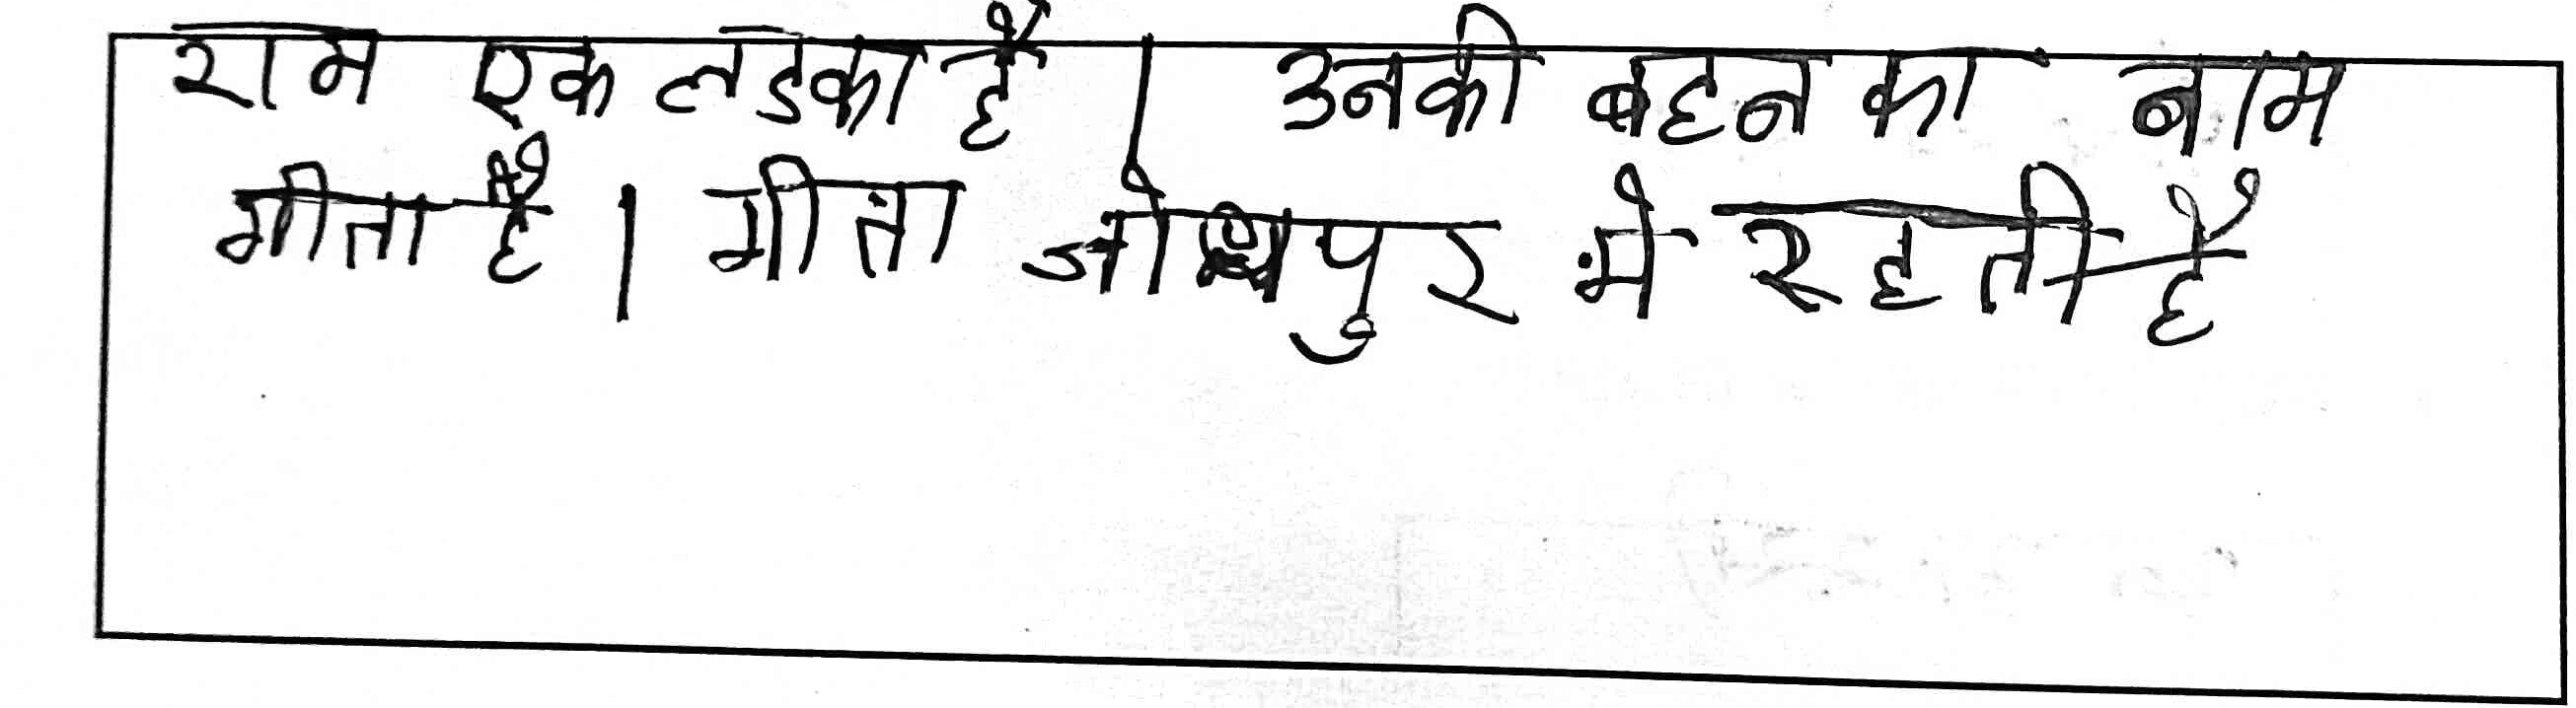 राम एक लडका है । उनकी बहन का नाम
गीता है । गीता जोधपुर मे रहती है